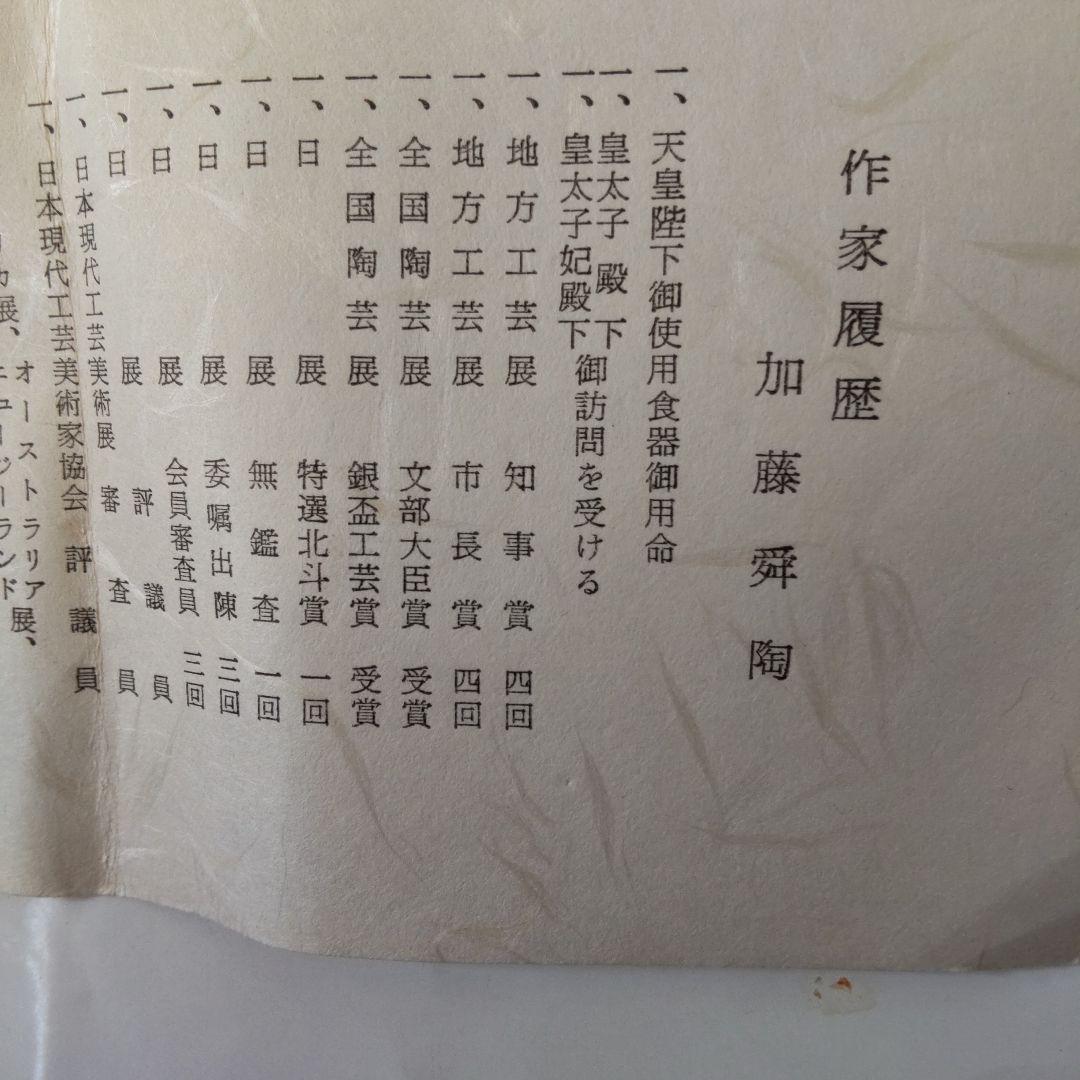 作家履歴
加藤舜陶
一、天皇陛下御使用食器御用命
一、皇太子殿下
一、皇太子妃殿下御訪問を受ける
一、地方工芸展 知事賞 四回
一、地方工芸展 市長賞 四回
一、全国陶芸展 文部大臣賞 受賞
一、全国陶芸展 銀盃工芸賞 受賞
一、日展 特選北斗賞 一回
一、日展 無鑑査 一回
一、日展 委嘱出陳 三回
一、日展 会員審査員 三回
一、日展 評議員
一、日本現代工芸美術展 審査員
一、日本現代工芸美術家協会 評議員
オーストラリア展、
カ展、ニュージーランド